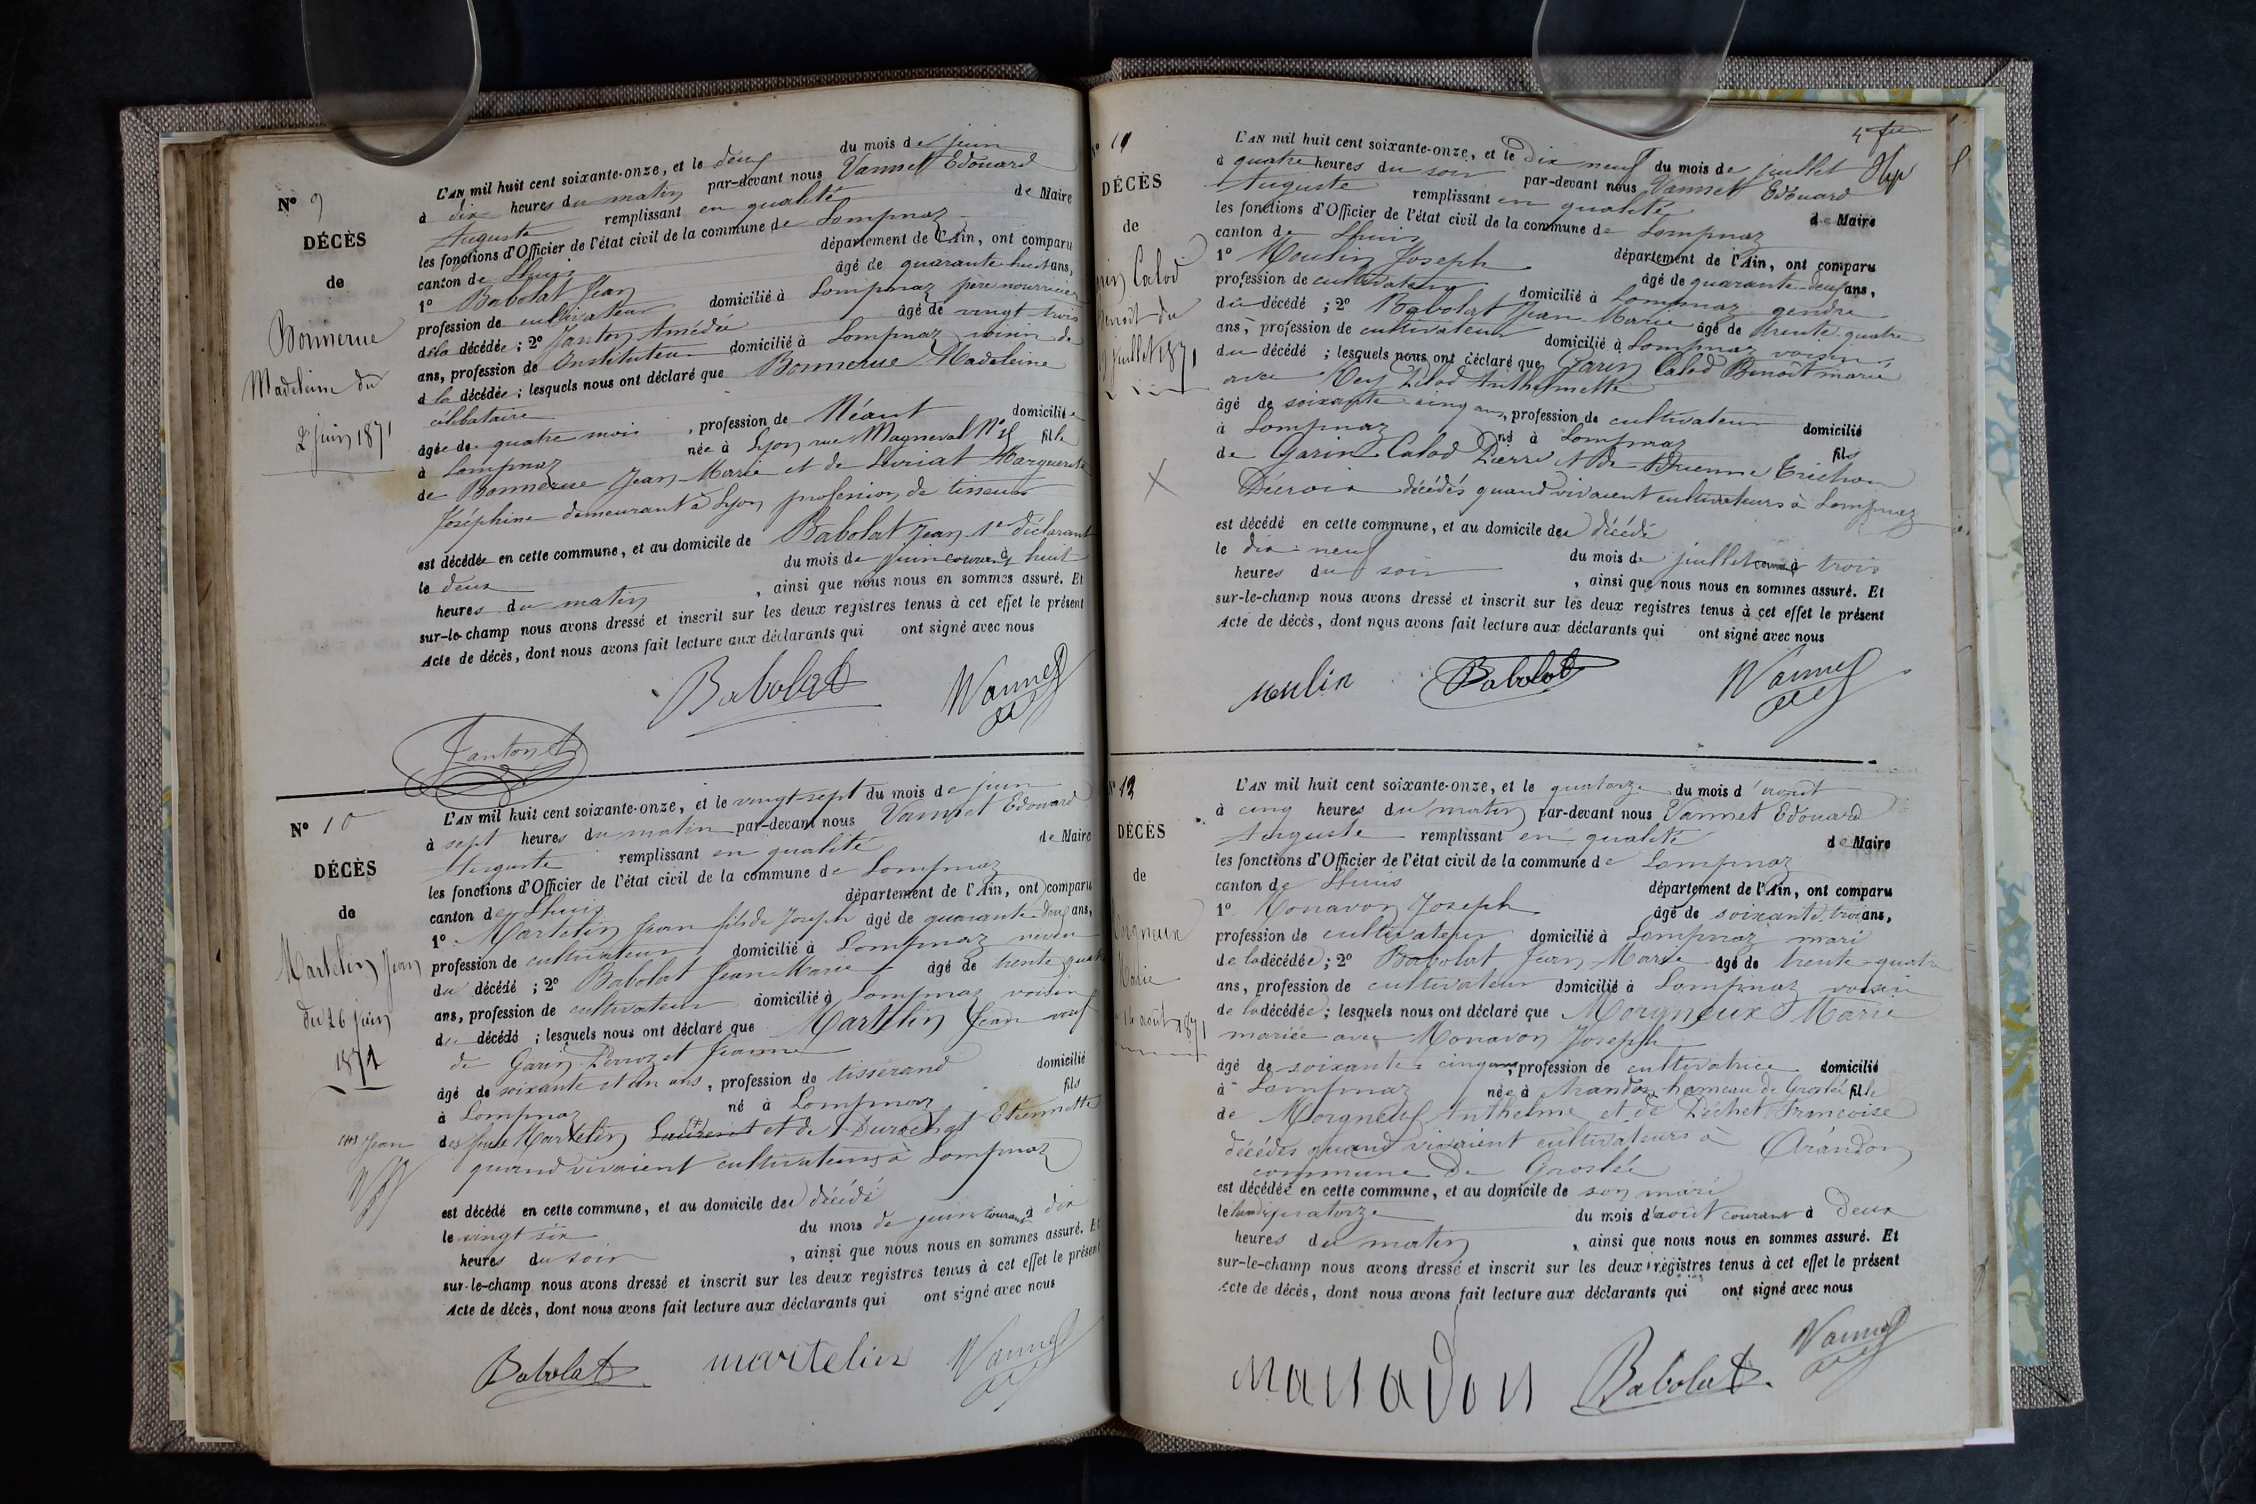 N° 9
DÉCÈS
de
Bonnerue
Madeleine du
2 juin 1871
L'AN mil huit cent soixante-onze, et le deux du mois de juin
à dix heures du matin par-devant nous Vannet Edouard
Auguste remplissant en qualité de Maire
les fonctions d'Officier de l'état civil de la commune de Lompnaz
canton de Lhuis département de l'Ain, ont comparu
1° Babolat Jean âgé de quarante-huit ans,
profession de cultivateur domicilié à Lompnaz père nourricier
de la décédée ; 2° Janton Amédée âgé de vingt trois
ans, profession de Instituteur domicilié à Lompnaz voisin de
d la décédée ; lesquels nous ont déclaré que Bonnerue Madeleine
célibataire
âgée de quatre mois, profession de Néant domiciliée
à Lompnaz née à Lyon rue Magneval N° fille
de Bonnerue Jean-Marie et de Marguerite
Joséphine demeurant à Lyon profession de tisseurs
est décédée en cette commune, et au domicile de Babolat Jean 1er déclarant
le deux du mois de juin courant à huit
heures du matin, ainsi que nous nous en sommes assuré. Et
sur-le-champ nous avons dressé et inscrit sur les deux registres tenus à cet effet le présent
Acte de décès, dont nous avons fait lecture aux déclarants qui ont signé avec nous
Babolat Vannet
Janton
N° 10
DÉCÈS
de
Martelin Jean
du 26 juin
1871
Jean
L'AN mil huit cent soixante-onze, et le vingt-sept du mois de juin
à sept heures du matin par-devant nous Vannet Edouard
Auguste remplissant en qualité de Maire
les fonctions d'Officier de l'état civil de la commune de Lompnaz
canton de Lhuis département de l'Ain, ont comparu
1° Martelin Jean fils de Joseph âgé de quarante-deux ans,
profession de cultivateur domicilié à Lompnaz neveu
du décédé ; 2° Babolat Jean Marie âgé de trente quatre
ans, profession de cultivateur domicilié à Lompnaz voisin
du décédé ; lesquels nous ont déclaré que Martelin Jean veuf
de Garin Perrozet Jeanne
âgé de soixante et un ans, profession de tisserand domicilié
à Lompnaz né à Lompnaz fils
des feus Martelin Laurent et de Etiennette
quand vivaient cultivateurs à Lompnaz
est décédé en cette commune, et au domicile de décédé
le vingt six du mois de juin courant à dix
heures du soir, ainsi que nous nous en sommes assuré. Et
sur-le-champ nous avons dressé et inscrit sur les deux registres tenus à cet effet le présent
Acte de décès, dont nous avons fait lecture aux déclarants qui ont signé avec nous
Babolat martelin Vannet
N° 11
DÉCÈS
de
Calod
Benoît du
juillet 1871
L'AN mil huit cent soixante-onze, et le dix neuf du mois de juillet
à quatre heures du soir par-devant nous Vannet Edouard
Auguste remplissant en qualité de Maire
les fonctions d'Officier de l'état civil de la commune de Lompnaz
canton de Lhuis département de l'Ain, ont comparu
1° Moulin Joseph âgé de quarante-deux ans,
profession de cultivateur domicilié à Lompnaz gendre
du décédé ; 2° Babolat Jean Marie âgé de trente quatre
ans, profession de cultivateur domicilié à Lompnaz voisin
du décédé ; lesquels nous ont déclaré que Garin Calod Benoît marié
avec Rey Anthelmette
âgé de soixante cinq ans, profession de cultivateur domicilié
à Lompnaz né à Lompnaz fils
de Garin Calod Pierre et de
décédés quand vivaient cultivateurs à Lompnaz
est décédé en cette commune, et au domicile de décédé
le dix neuf du mois de juillet courant à trois
heures du soir, ainsi que nous nous en sommes assuré. Et
sur-le-champ nous avons dressé et inscrit sur les deux registres tenus à cet effet le présent
Acte de décès, dont nous avons fait lecture aux déclarants qui ont signé avec nous
Moulin Babolat Vannet
N° 12
DÉCÈS
de
Marie
août 1871
L'AN mil huit cent soixante-onze, et le quatorze du mois d'août
à cinq heures du matin par-devant nous Vannet Edouard
Auguste remplissant en qualité de Maire
les fonctions d'Officier de l'état civil de la commune de Lompnaz
canton de Lhuis département de l'Ain, ont comparu
1° Monavon Joseph âgé de soixante trois ans,
profession de cultivateur domicilié à Lompnaz mari
de la décédée ; 2° Babolat Jean Marie âgé de trente-quatre
ans, profession de cultivateur domicilié à Lompnaz voisin
de la décédée ; lesquels nous ont déclaré que Morgneux Marie
mariée avec Monavon Joseph
âgé de soixante cinq ans, profession de cultivatrice domicilié
à Lompnaz née à Arandon hameau de Groslée fille
de Morgneux Anthelme et de Péchet Francoise
décédés quand vivaient cultivateurs à Arandon
commune de Groslée
est décédée en cette commune, et au domicile de son mari
le quatorze du mois d'août courant à deux
heures du matin, ainsi que nous nous en sommes assuré. Et
sur-le-champ nous avons dressé et inscrit sur les deux registres tenus à cet effet le présent
Acte de décès, dont nous avons fait lecture aux déclarants qui ont signé avec nous
Babolat Vannet